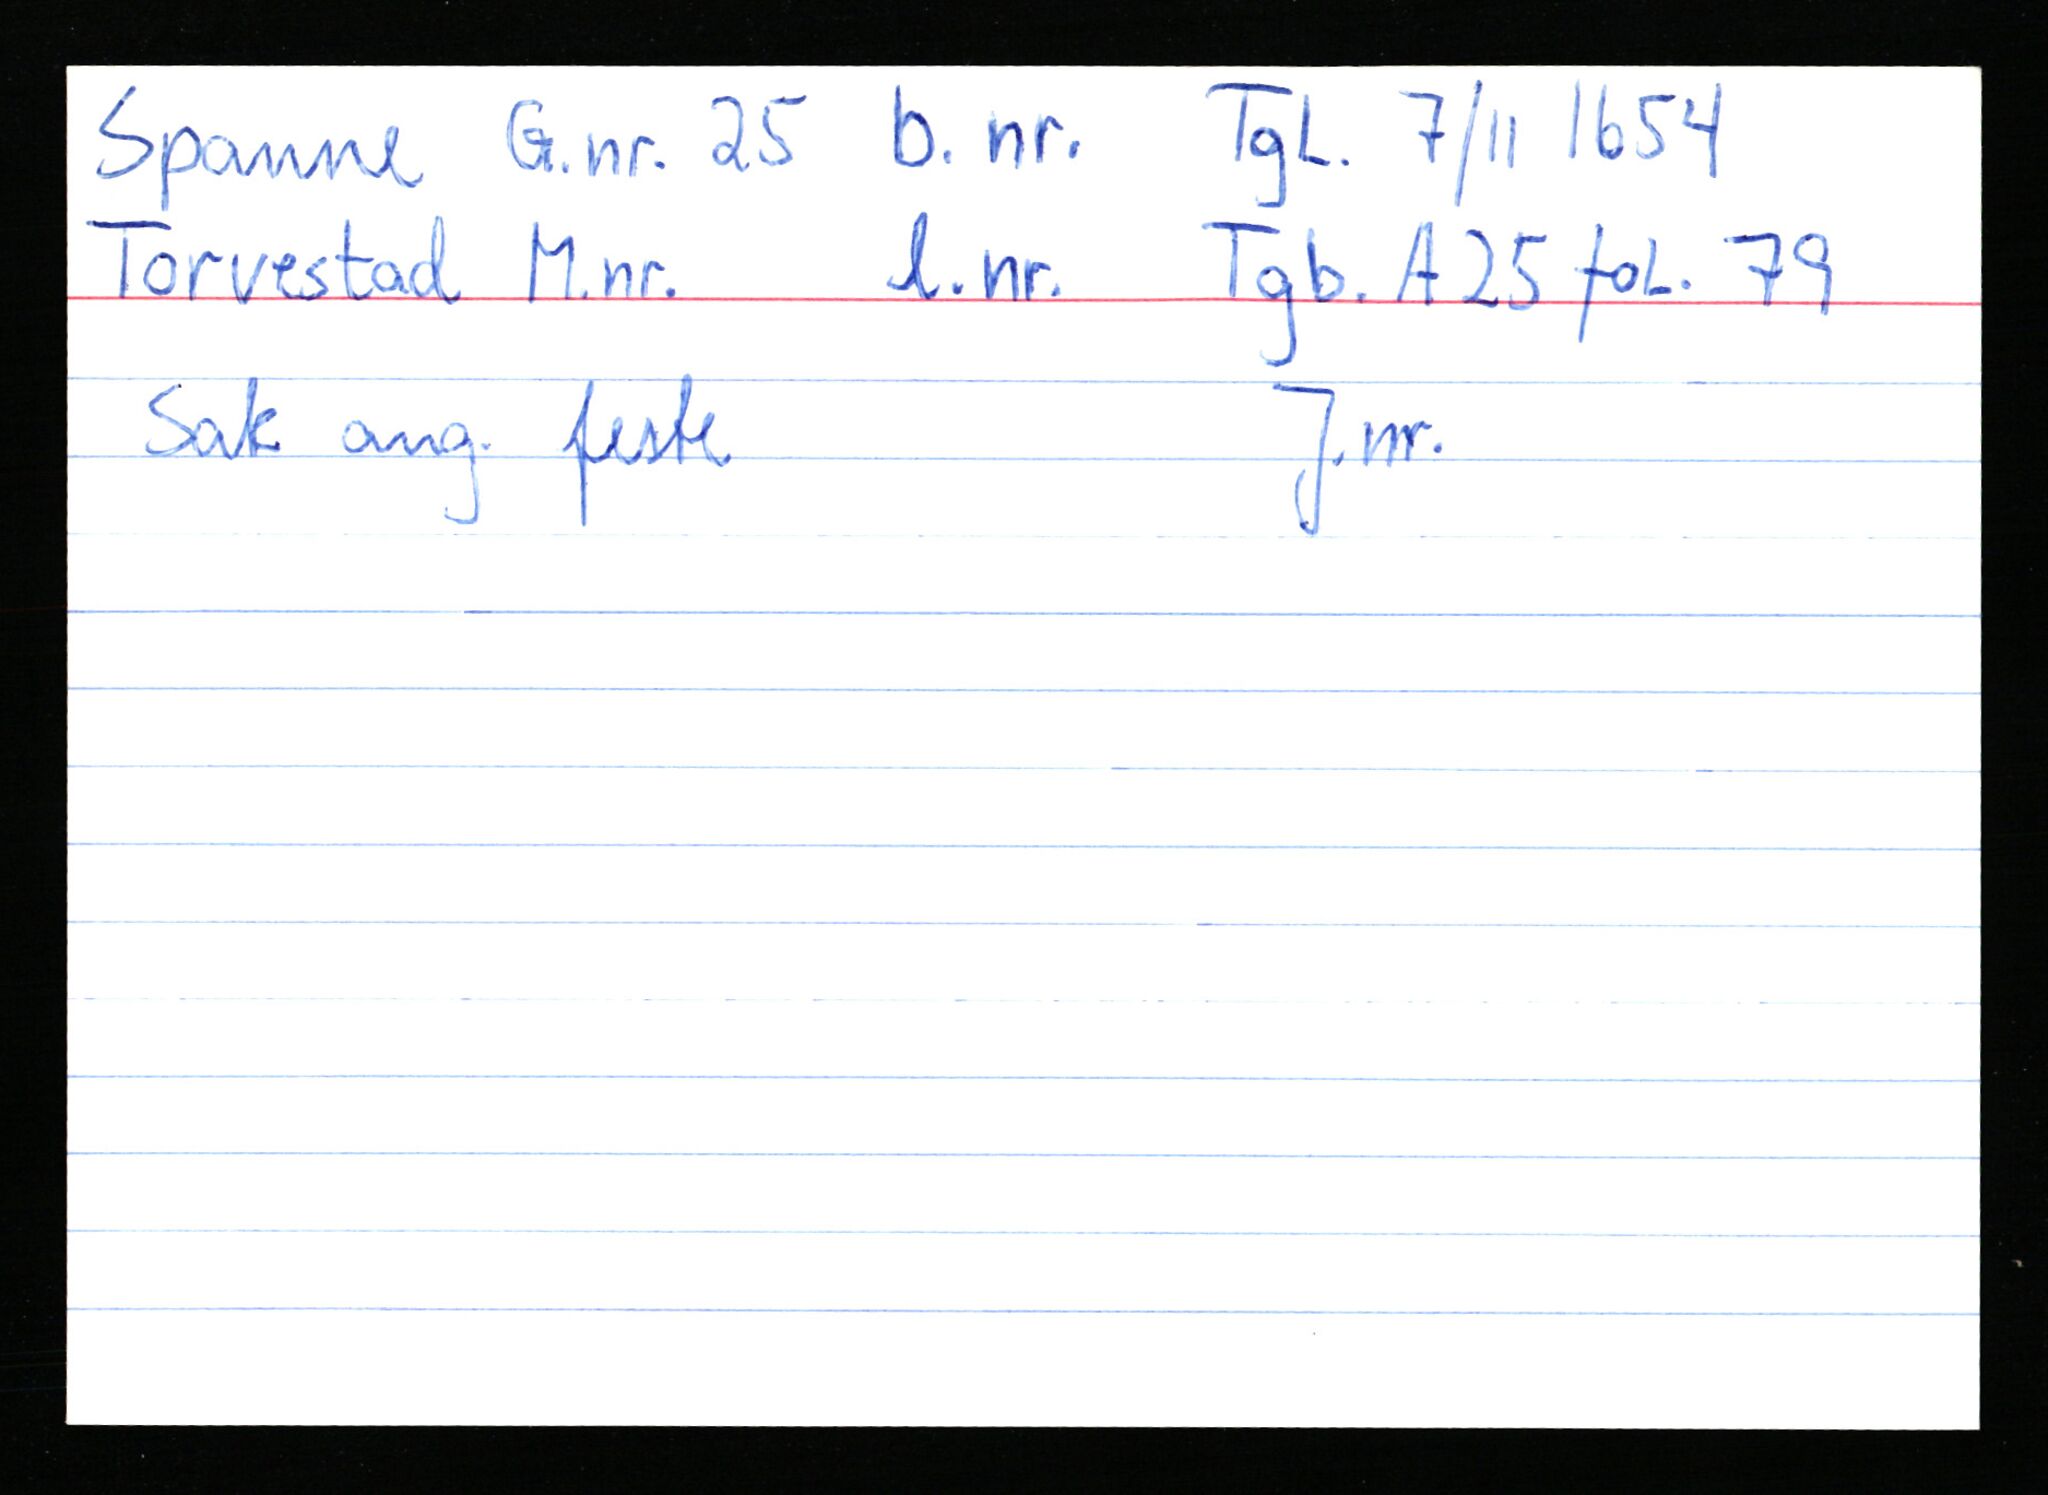 Spanne G.nr. 25 b. nr. TgL. 7/11 1654
Torvestad M.nr. l.nr. Tgb. A 25 foL. 79
Sak ang. feste J.nr.